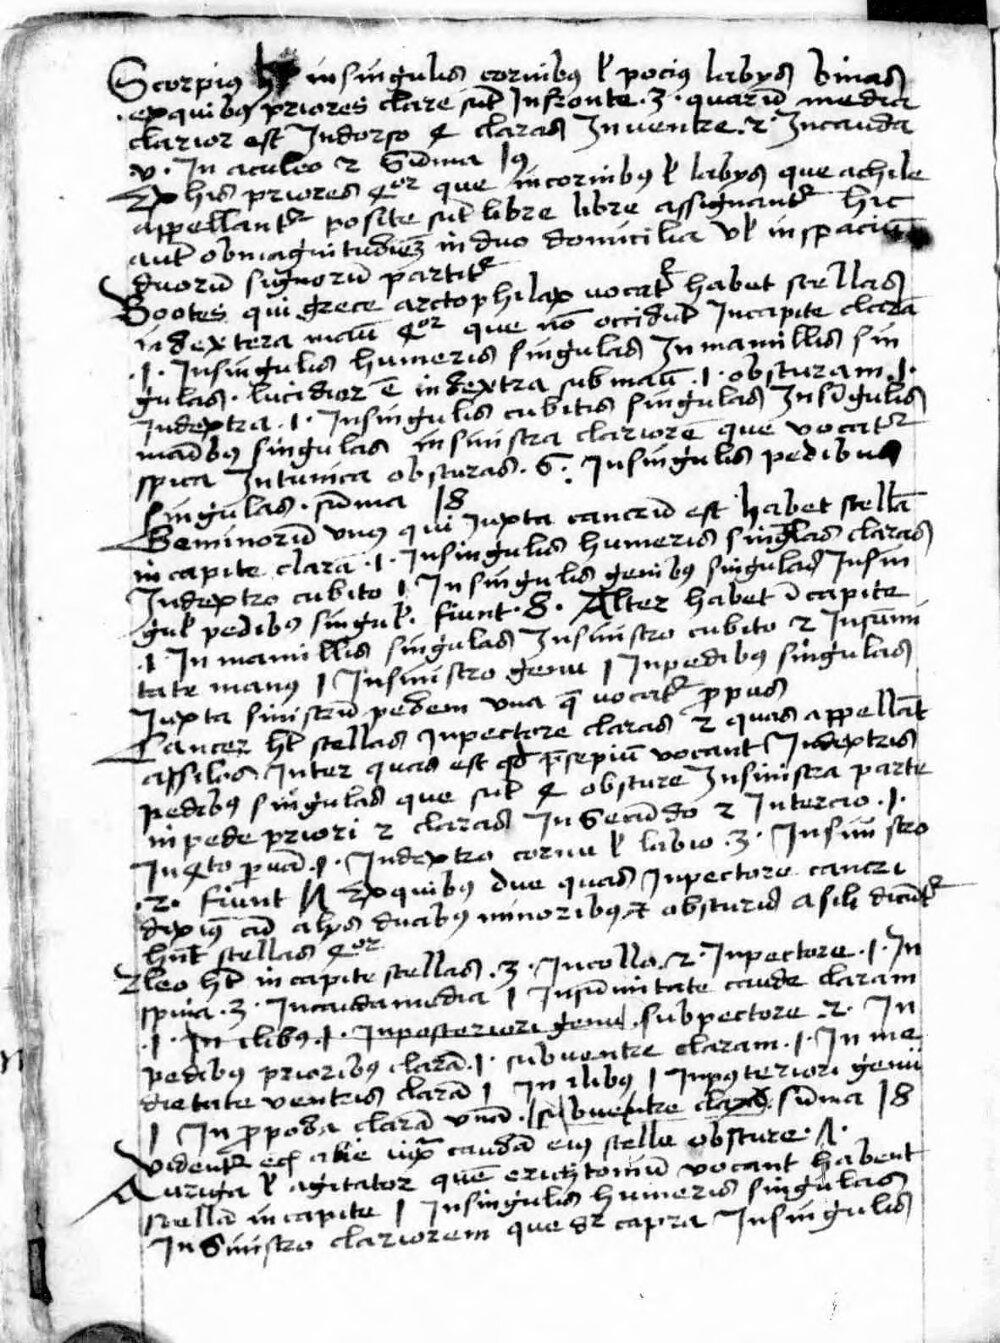 Scorpius ht in singulis cornibus l pocius labijs binas
ex quibus priores clare sut In fronte .3. quarū media
clarior est In dorso 4 claras In ventre .2. In cauda
v. In aculeo 2 Sūma 19
Ex his priores 4or que in cornibus l labijs que achile
appellantr posite sut libre libre assignantr hic
aut ob magnitudinez in duo domicilia vl in spaciū
duorū signorū partitr
Bootes qui grece arctophilax vocatr habet stellas
in dextera manū 4or que nō occidūt In capite clarā
.1. In singulis humeris singulas In mamillis sin
gulas. lucidior ē in dextra sub manū .1. obsturam .1.
In dextra .1. In singulis cubitis singulas In sīgulis
manibus singulas in sinistra clariorē que vocatr
spica In tunica obsturas .6. In singulis pedibus
singulas. sūma 18
Geminorū vnus qui Iuxta cancrū est habet stellā
in capite clarā .1. In singulis humeris singlas claras
In dextro cubito 1 In singulis genibus singulas In sin
gul pedibus singul. fiunt .8. Alter habet ī capite
.1. In mamillis singulas In sinistro cubito 2 In sūmi
tate manus 1 In sinistro genu 1 In pedibus singulas
Iuxta sinistrū pedem vna q̄ vocatr ppus
Cancer ht stellas In pectore claras 2 quas appellāt
assilos Inter quas est qd p̄sepiū vocant In dextris
pedibus singulas que sut 4 obsture In sinistra parte
in pede priori 2 claras In Secūndo 2 In tercio .1.
In 4to puā .1. In dextro cornu l labio .3. In sini stro
.2. fiunt 17 Ex quibus due quas In pectore cancri
diximus cū alijs duabus minoribus 2 obsturis asili dicūtr
hnt stellas 4or
Leo ht in capite stellas .3. In collo .2. In pectore .1. In
spina .3. In cauda media 1 In sūmitate caude claram
.1. In ilibus .1. In posteriori genu .sub pectore .2. In
pedibus prioribus clarā .1. sub ventre claram .1. In me
dietate ventris clarā 1 In ilibus 1 In posteriori genu
1 In p poda clarā vnā. sub ventre clarā. sūma 18
videntr et alie iux caudā eius stelle obsture .7.
Auriga l agitator quē erichtoniū vocant habent
stellā in capite 1 In singulis humeris singulas
In Sinistro clariorem que dr capra In singulis